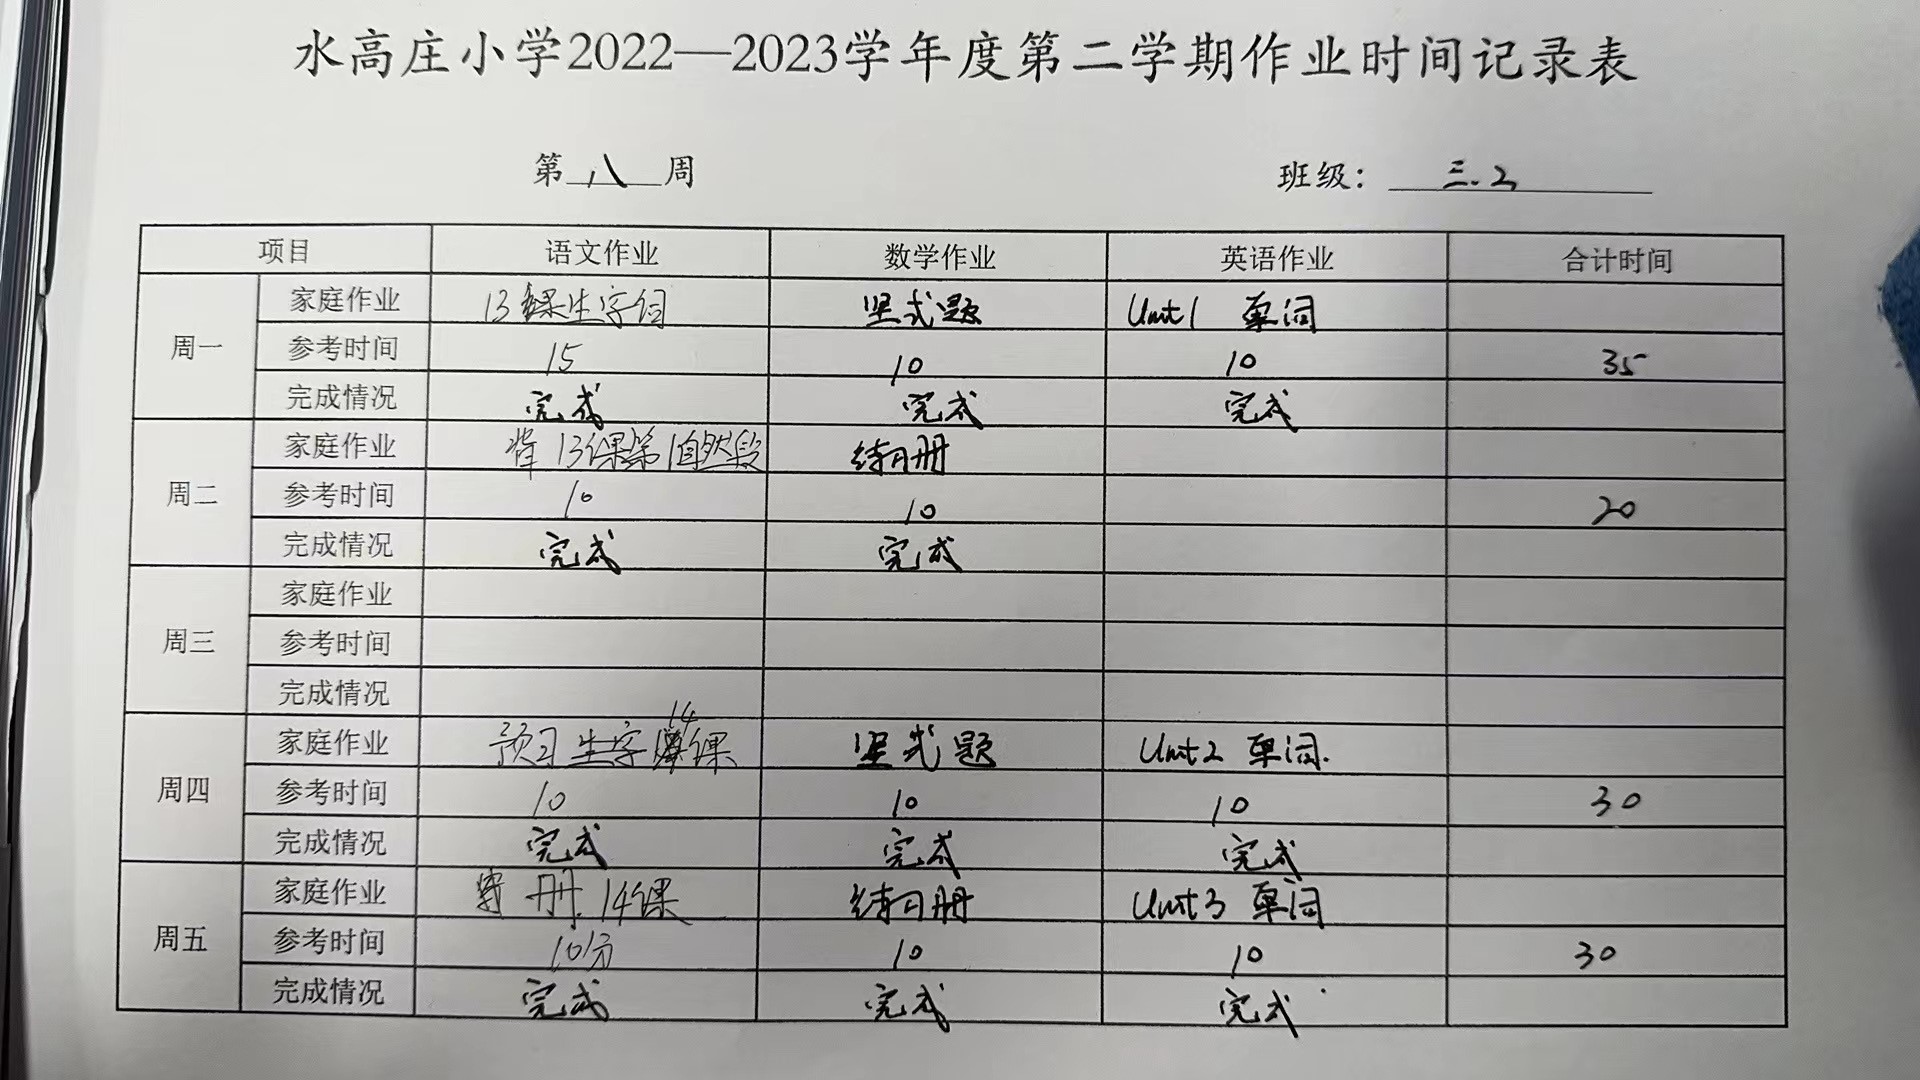 水高庄小学2022—2023学年度第二学期作业时间记录表
第 八 周 班级： 三.2
项目 语文作业 数学作业 英语作业 合计时间
周一
家庭作业 13课生字词 竖式题 Unit1 单词
参考时间 15 10 10 35
完成情况 完成 完成 完成
周二
家庭作业 背13课第1自然段 练习册
参考时间 10 10 20
完成情况 完成 完成
周三
家庭作业
参考时间
完成情况
周四
家庭作业 预习生字14课 竖式题 Unit2 单词.
参考时间 10 10 10 30
完成情况 完成 完成 完成
周五
家庭作业 册.14课 练习册 Unit3 单词
参考时间 10分 10 10 30
完成情况 完成 完成 完成